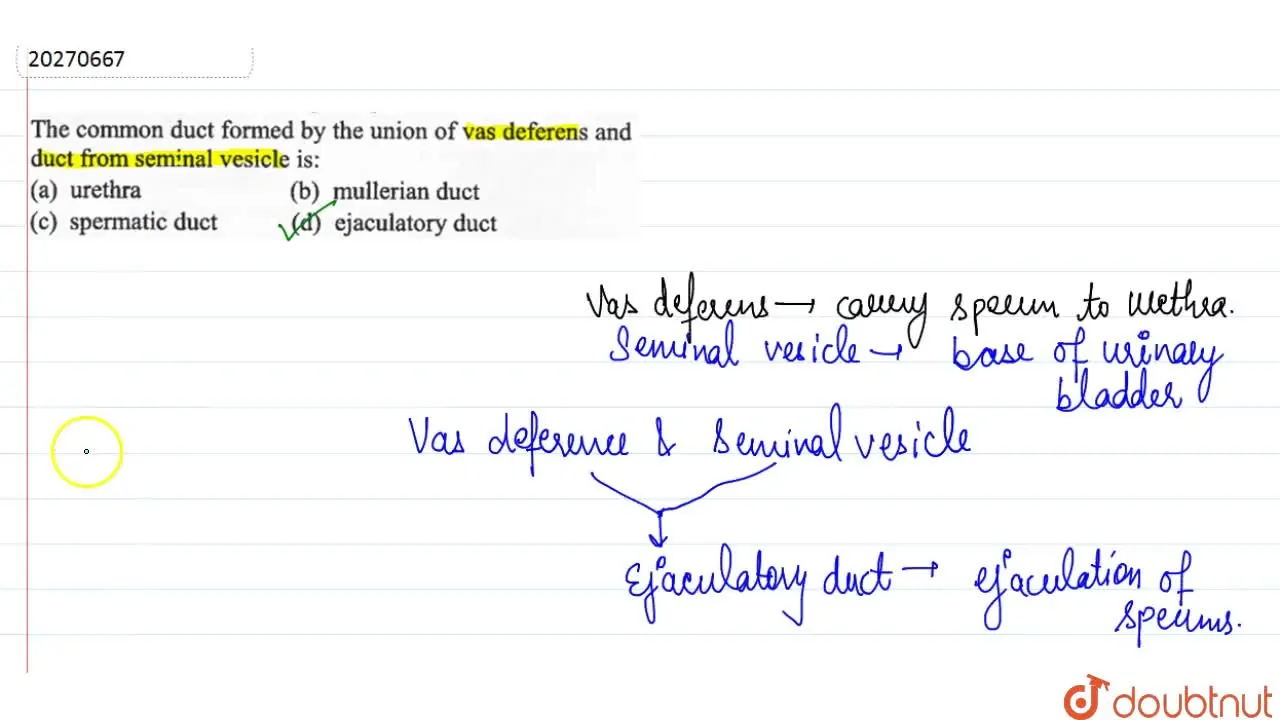 20270667
The common duct formed by the union of vas deferens and
duct from seminal vesicle is:
(a) urethra (b) mullerian duct
(c) spermatic duct (d) ejaculatory duct
Vas deferens → carry sperm to urethra.
Seminal vesicle → base of urinary
bladder
Vas deference & seminal vesicle
Ejaculatory duct → ejaculation of
sperms.
doubtnut